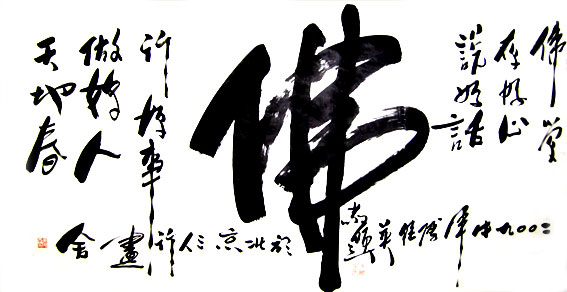 佛
存好心
説好話
佛
行好事
做好人
天地春
二〇〇九
於北京三人行畫舍